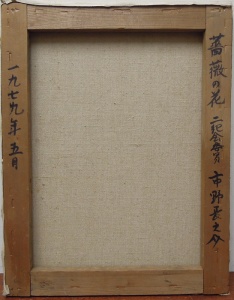 薔薇の花 二紀会会員 市野長之介
一九七九年 五月